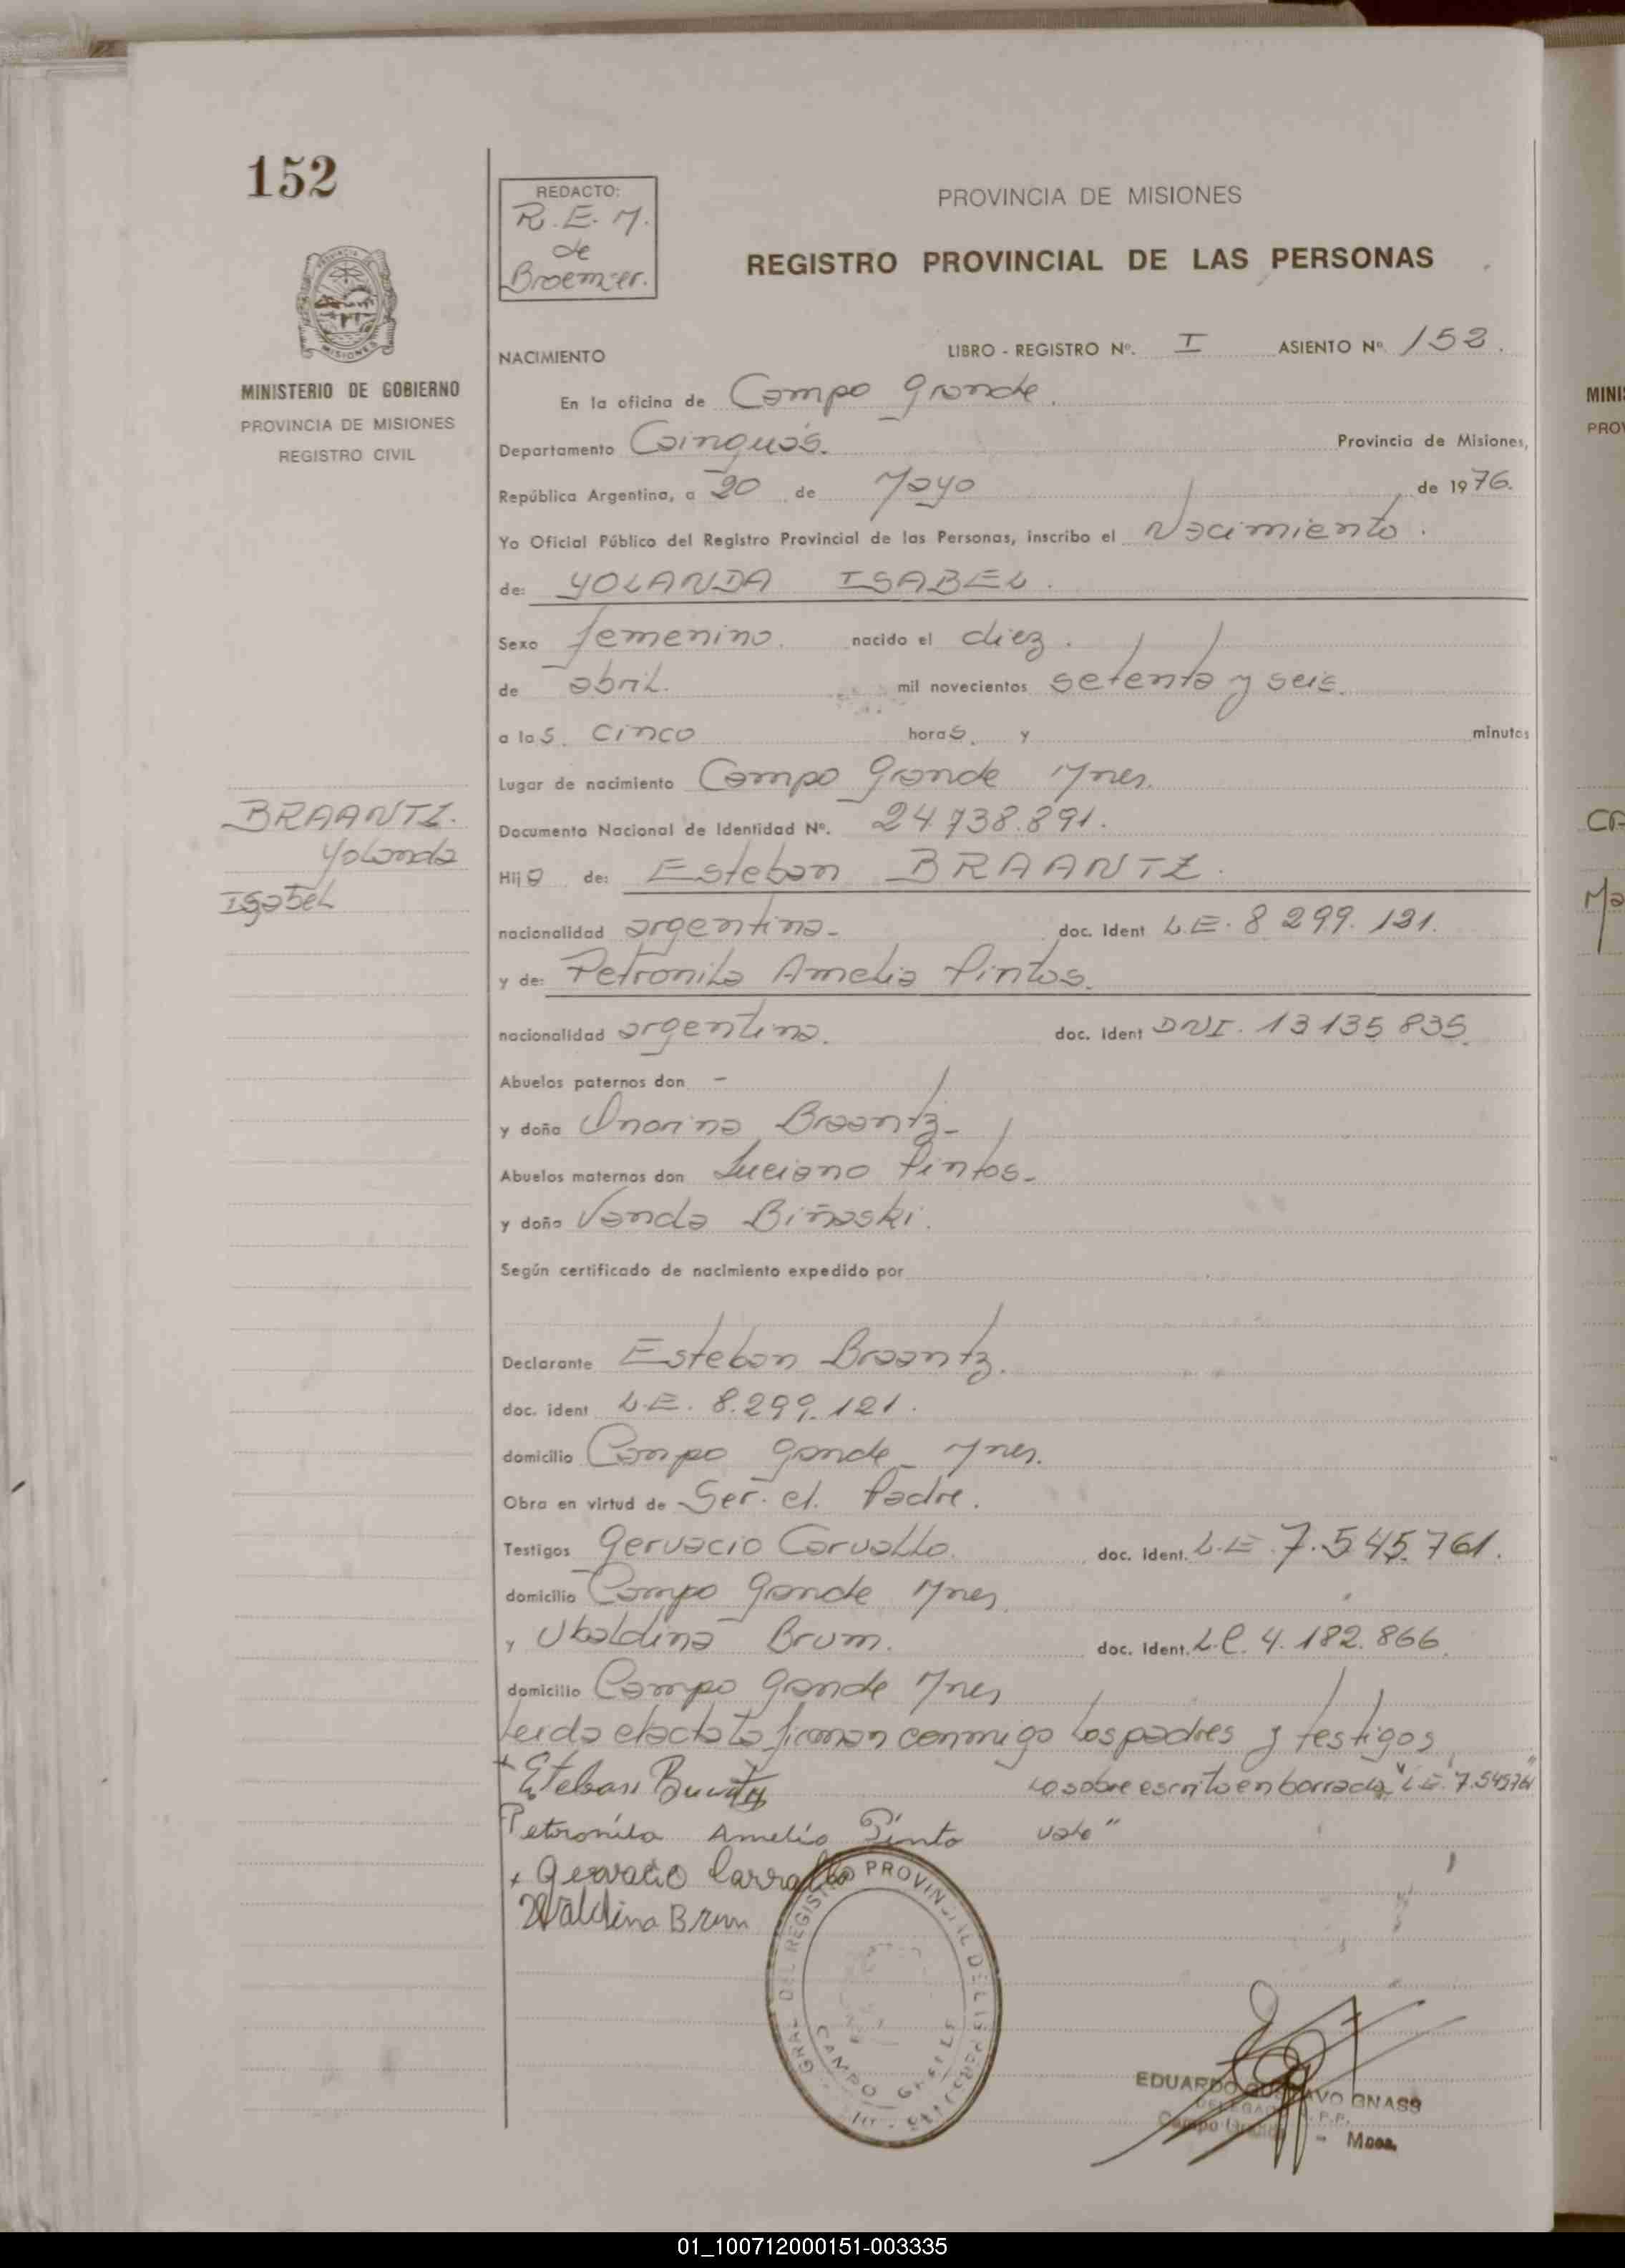 152
REDACTO:
R. E. M.
de
Broemser.
PROVINCIA DE MISIONES
REGISTRO PROVINCIAL DE LAS PERSONAS
MISIONES
MINISTERIO DE GOBIERNO
PROVINCIA DE MISIONES
REGISTRO CIVIL
NACIMIENTO
LIBRO - REGISTRO Nº. I ASIENTO Nº 152.
En la oficina de Campo Grande.
Departamento Cainguás. Provincia de Misiones,
República Argentina, a 20 de Mayo de 1976.
Yo Oficial Público del Registro Provincial de las Personas, inscribo el Nacimiento.
de: YOLANDA ISABEL.
Sexo femenino. nacido el diez.
de abril. mil novecientos setenta y seis.
a las cinco horas y minutos
Lugar de nacimiento Campo Grande Mnes.
BRAANTZ.
Yolanda
Isabel
Documento Nacional de Identidad Nº. 24.738.891.
Hija de: Esteban BRAANTZ.
nacionalidad argentina- doc. Ident L.E. 8 299. 121.
y de: Petronila Amelia Pintos.
nacionalidad argentina. doc. Ident DNI. 13135 835.
Abuelos paternos don -
y doña Onorina Braantz-
Abuelos maternos don Luciano Pintos-
y doña Vanda Biñaski.
Según certificado de nacimiento expedido por
Declarante Esteban Braantz.
doc. ident L.E. 8.299.121.
domicilio Campo Gande Mnes.
Obra en virtud de Ser. el. Padre.
Testigos Gervacio Carvallo. doc. Ident. L.E 7.545.761.
domicilio Campo Gande Mnes
y Ubaldina Brum. doc. Ident. L.C. 4.182.866.
domicilio Campo Gande Mnes
Leida el acta la firman conmigo los padres y testigos
+ Esteban
Lo sobre escrito en borrado "L.E. 7.545761"
Petronila Amelia Pinto vale"
+ Gervacio Carvallo
Brum
GRAL DEL REGISTRO PROVINCIAL DE
CAMPO
EDUARDO GUSTAVO GNASS
Campo Grande - Mnes.
MINI
PROV
01_100712000151-003335